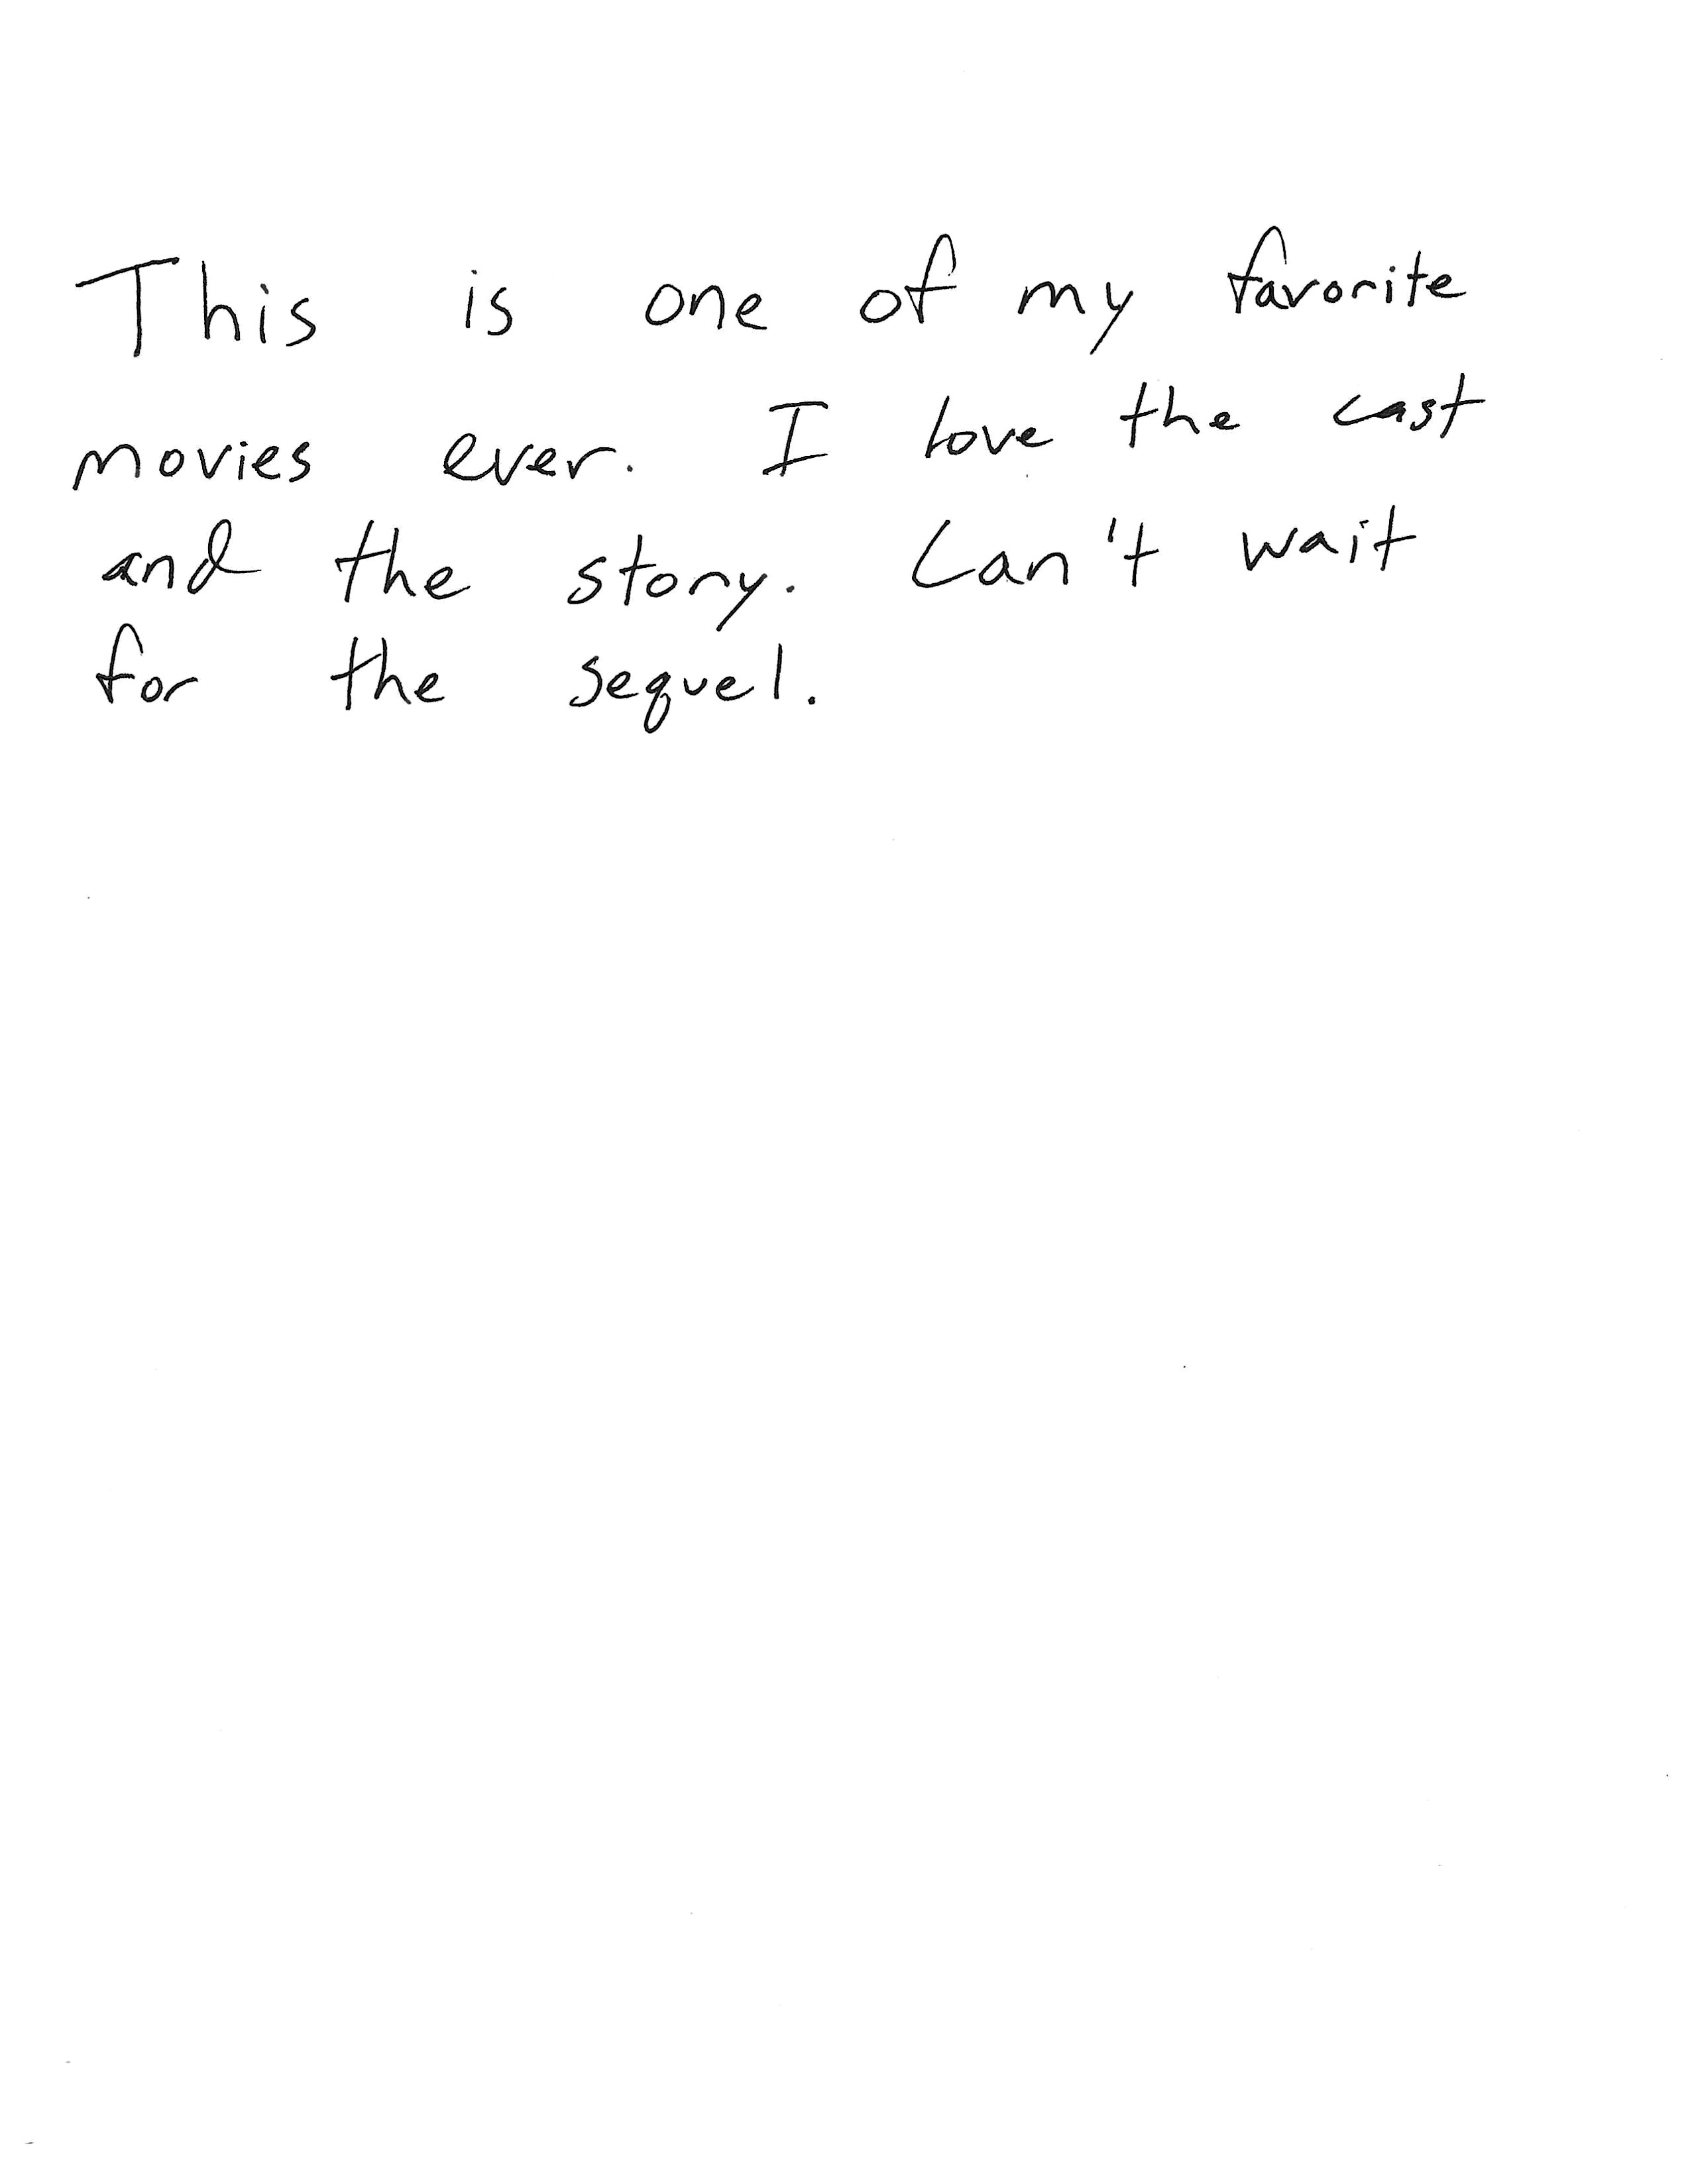 This is one of my favorite
movies ever. I love the cast
and the story. Can't wait
for the sequel.